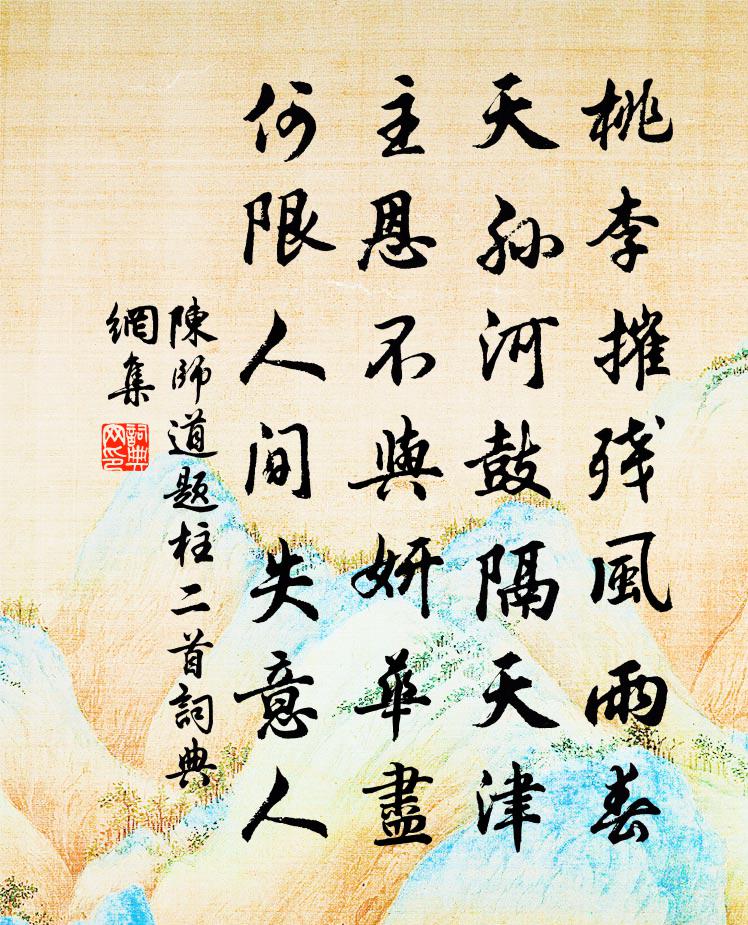 桃李摧残風雨春
天孫河鼓隔天津
主恩不與妍華盡
何限人間失意人
陳師道題柱二首詞典
網集
詞典
网印